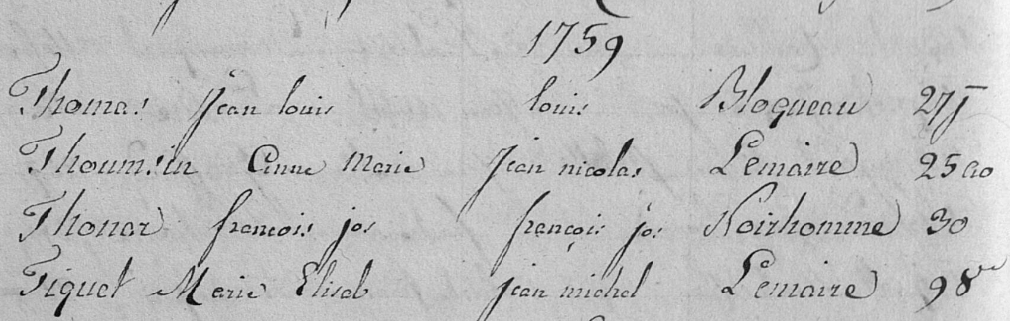 1759
Thomas Jean louis louis Bloqueau 27 J
Thoumsin Anne Marie Jean nicolas Lemaire 25 ao
Thonar francois jos françois jos Noirhomme 30
Tiquet Marie Elisab jean michel Lemaire 9 8re